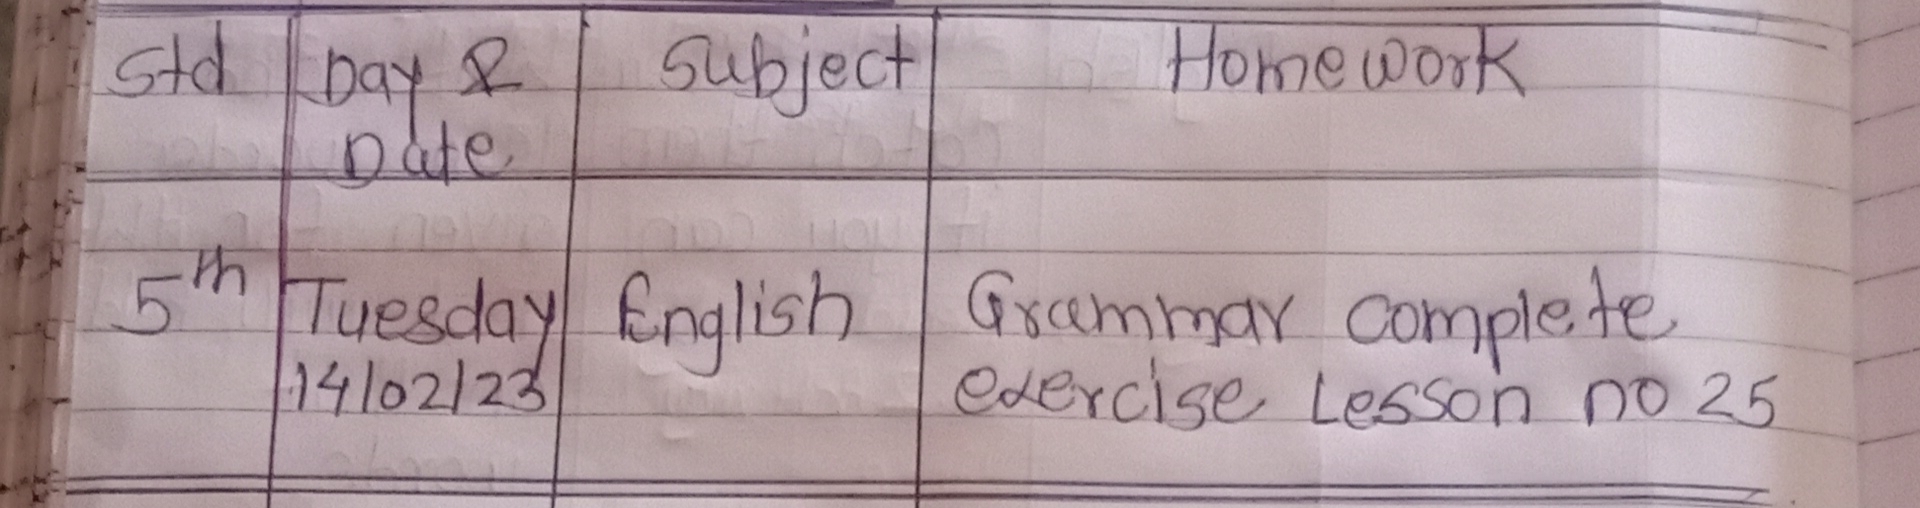 Std Day & Subject Homework
Date
5th Tuesday English Grammar complete
14/02/23 exercise Lesson no 25